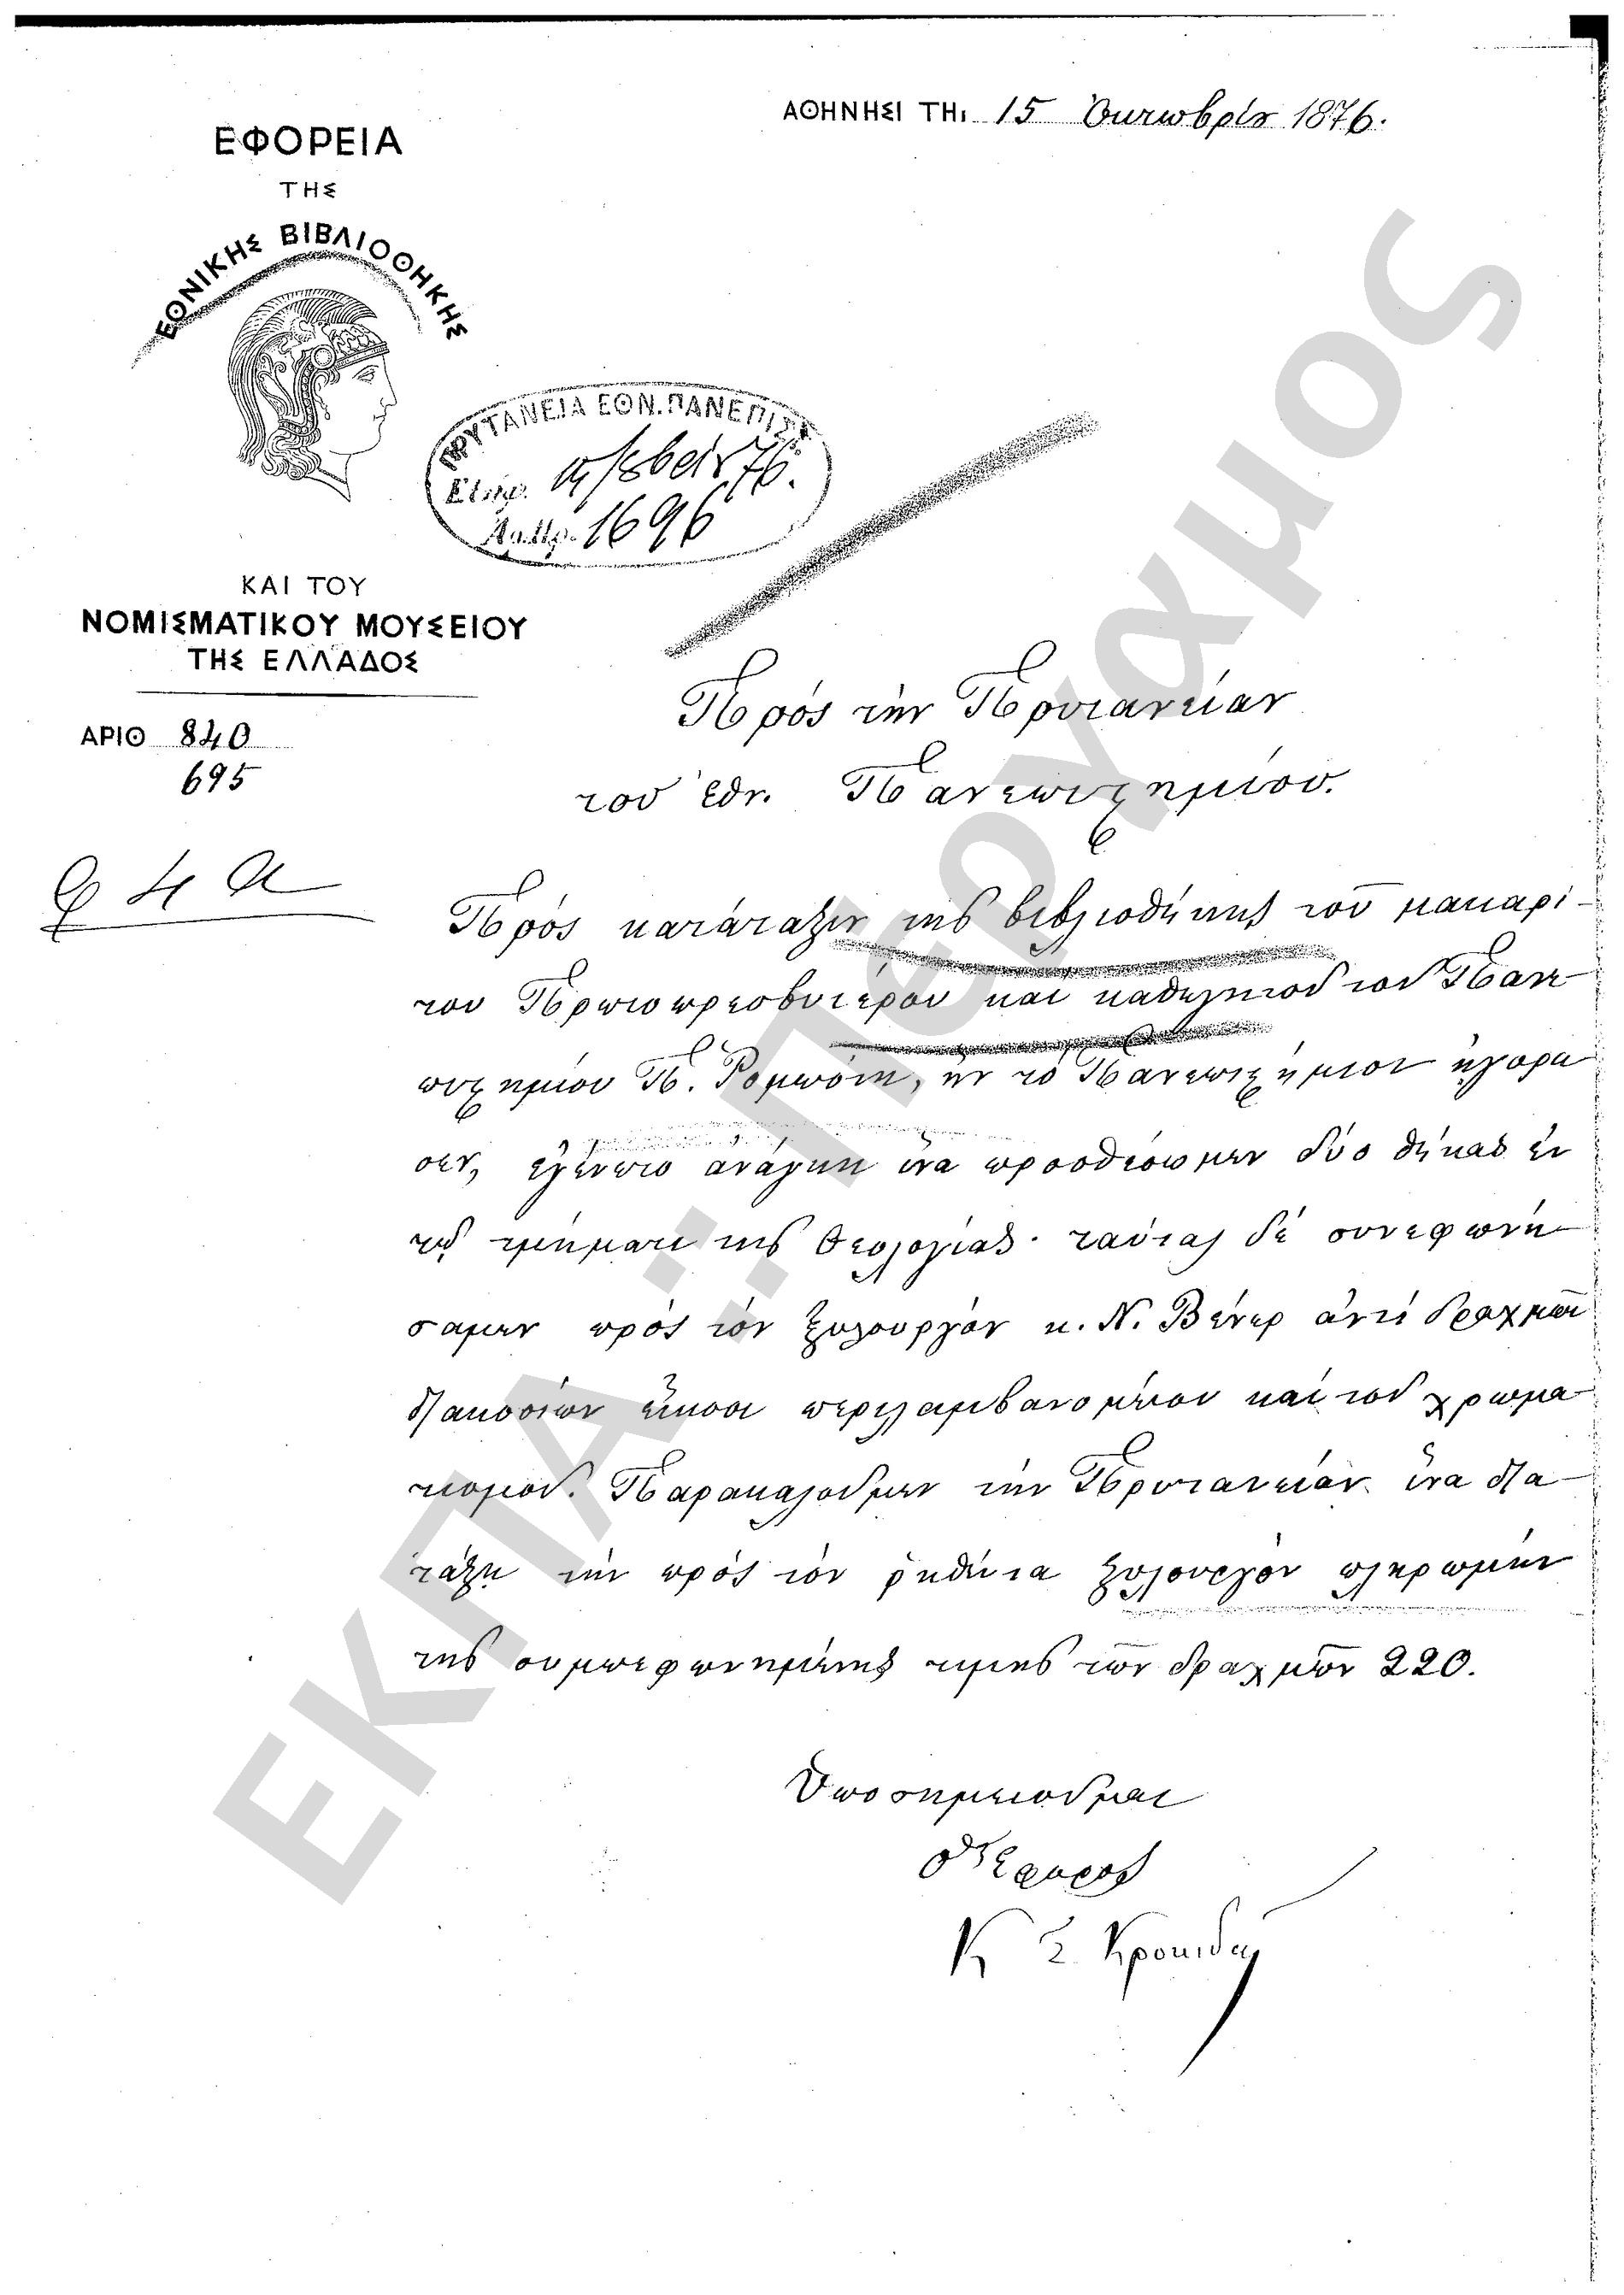 ΑΘΗΝΗΣΙ ΤΗι 15 Ὀκτωβρίου 1876.
ΕΦΟΡΕΙΑ
ΤΗΣ
ΕΘΝΙΚΗΣ ΒΙΒΛΙΟΘΗΚΗΣ
ΠΡΥΤΑΝΕΙΑ ΕΘΝ. ΠΑΝΕΠΙΣΤ
76.
1696
ΚΑΙ ΤΟΥ
ΝΟΜΙΣΜΑΤΙΚΟΥ ΜΟΥΣΕΙΟΥ
ΤΗΣ ΕΛΛΑΔΟΣ
ΑΡΙΘ 840
695
Πρός τήν Πρυτανείαν
τοῦ Ἐθν. Πανεπιστημίου.
Πρός κατάταξιν τῆς βιβλιοθήκης τοῦ μακαρί-
του Πρωτοπρεσβυτέρου καί καθηγητοῦ τοῦ Πανε-
πιστημίου Π. Ρομπότη, ἥν τό Πανεπιστήμιον ἠγόρα
σεν, ἐγένετο ἀνάγκη ἵνα προσθέσωμεν δύο θήκας ἐν
τῷ τμήματι τῆς Θεολογίας· ταύτας δέ συνεφωνή-
σαμεν πρός τόν ξυλουργόν κ. Ν. Βένερ ἀντί δραχμῶν
διακοσίων εἴκοσι περιλαμβανομένου καί τοῦ χρωμα-
τισμοῦ. Παρακαλοῦμεν τήν Πρυτανείαν ἵνα δια-
τάξῃ τήν πρός τόν ῥηθέντα ξυλουργόν πληρωμήν
τῆς συμπεφωνημένης τιμῆς τῶν δραχμῶν 220.
Ὑποσημειοῦμαι
ὁ Ἔφορος
Κ Σ. Κροκιδᾶς
ΕΚΠΑ.: Πέργαμος